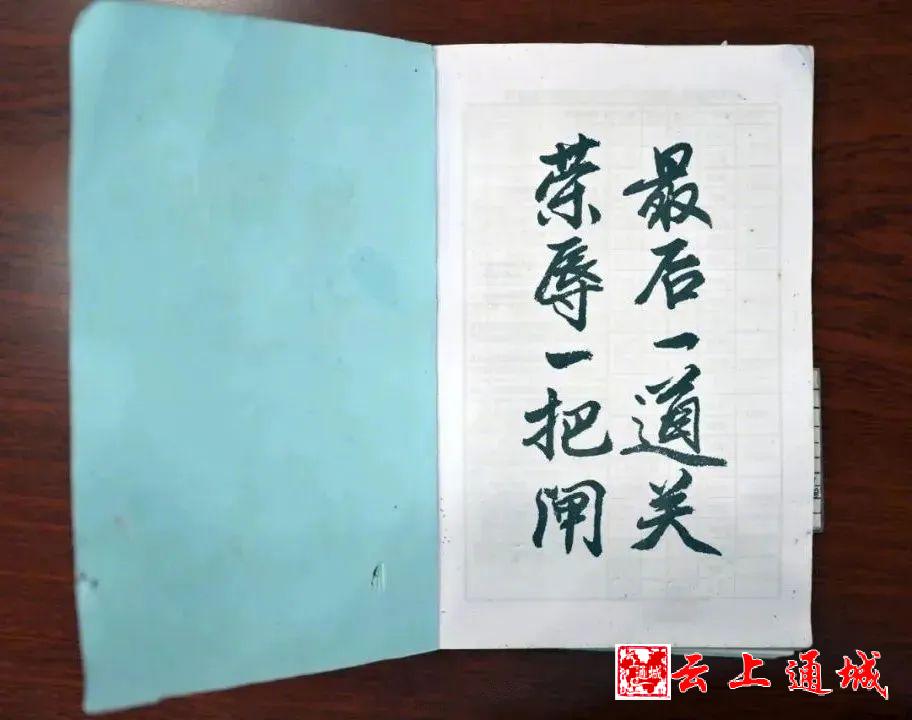 最后一道关
荣辱一把闸
通城
云上通城